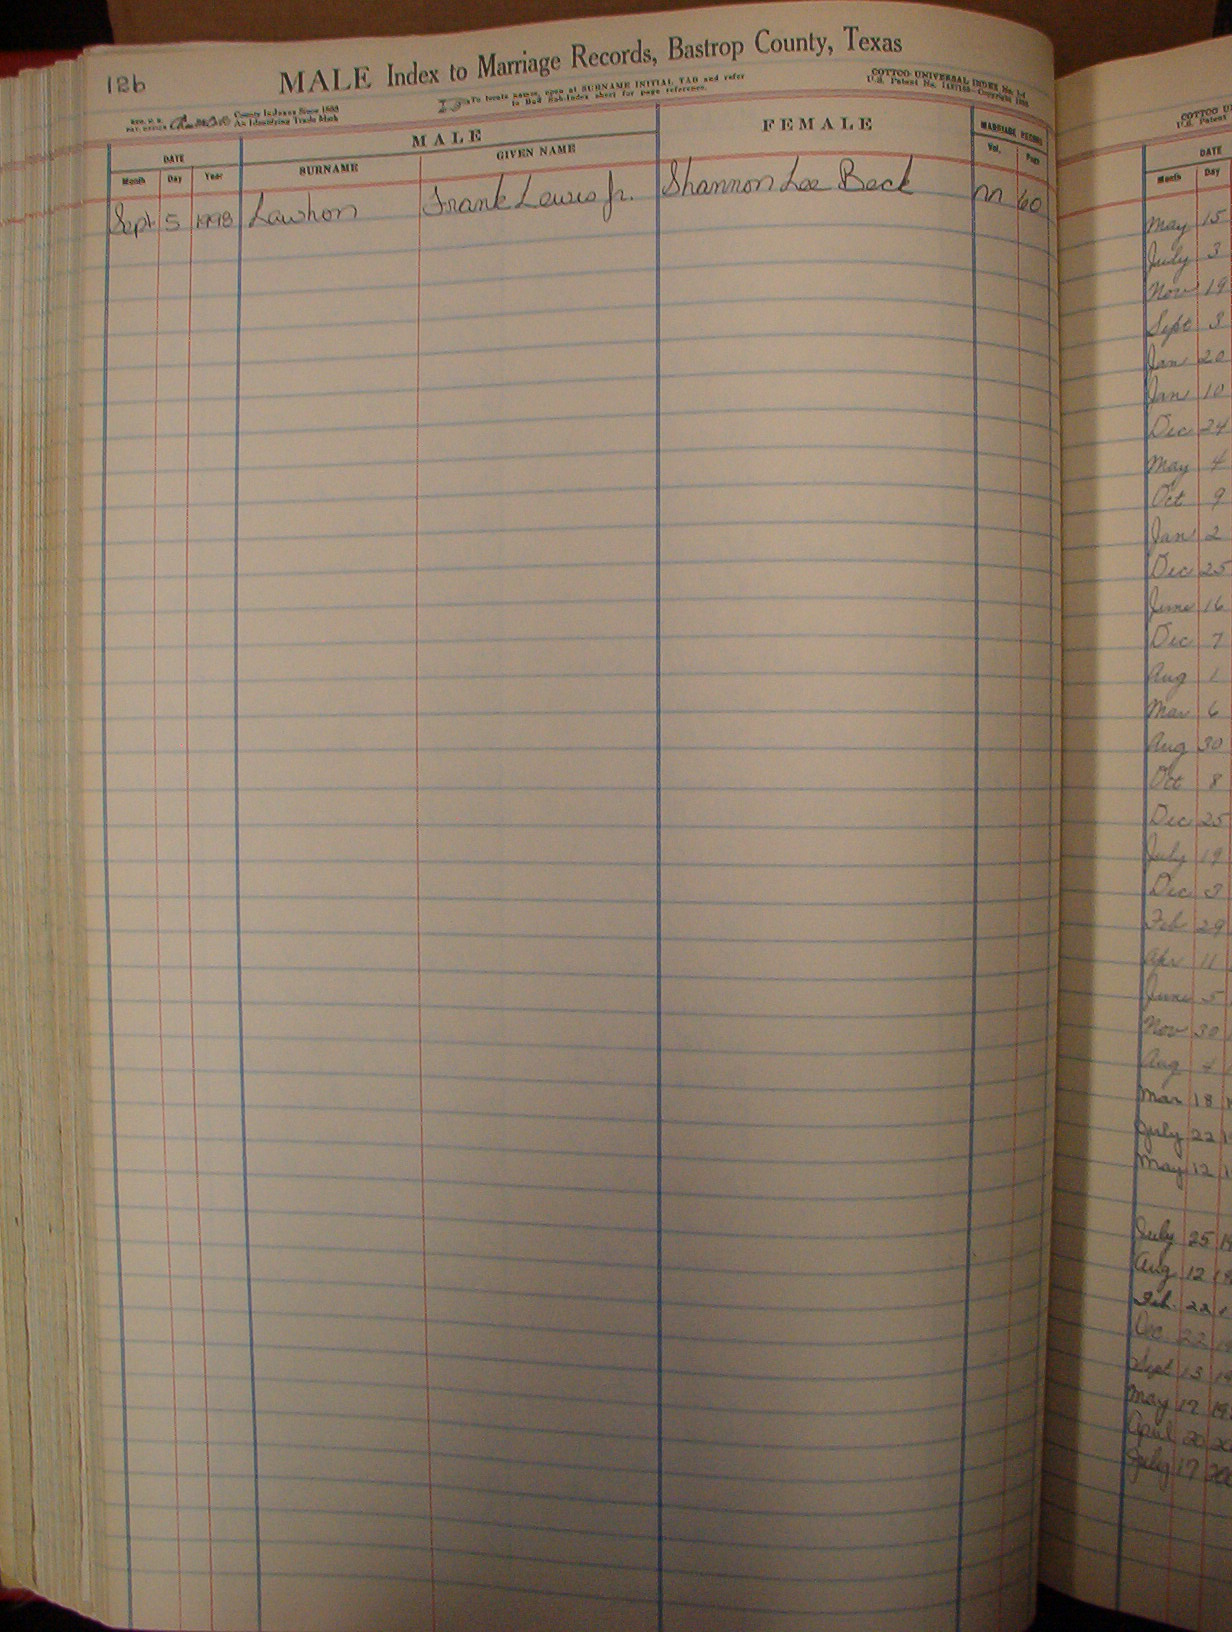 126
MALE Index to Marriage Records, Bastrop County, Texas
REG. U. S. PAT. OFFICE
County Indexes Since 1888
An Identifying Trade Mark
To locate names, open at SURNAME INITIAL TAB and refer
to Buff Sub-Index sheet for page reference.
COTTCO UNIVERSAL INDEX No.
U.S. Patent No.
DATE
MALE
FEMALE
MARRIAGE RECORD
Month Day Year
SURNAME
GIVEN NAME
Vol. Page
Sept 5 1998 Lawhon Frank Lewis Jr. Shannon Lee Beck M 60
COTTCO
U.S. Patent
DATE
Month Day
May 15
July 3
Nov 19
Sept 3
Jan 20
Jan 10
Dec 24
May 4
Oct 9
Jan 2
Dec 25
June 16
Dec 7
Aug 1
Mar 6
Aug 30
Oct 8
Dec 25
July 19
Dec 3
Feb 29
Apr 11
June 5
Nov 30
Aug 4
Mar 18
July 22
May 12
July 25
Aug 12
Feb. 22
Dec 22
Sept 13
May 17
April 20
July 17